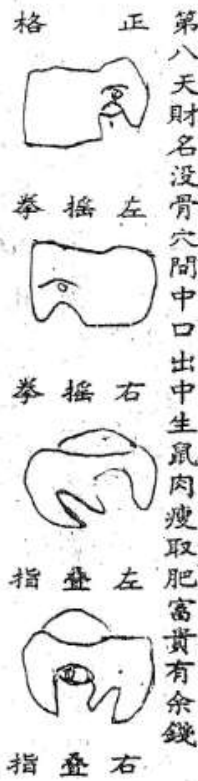 第八天財名没骨穴間中口出中生鼠肉瘦取肥富貴有余錢
正格
左摇拳
右摇拳
左叠指
右叠指